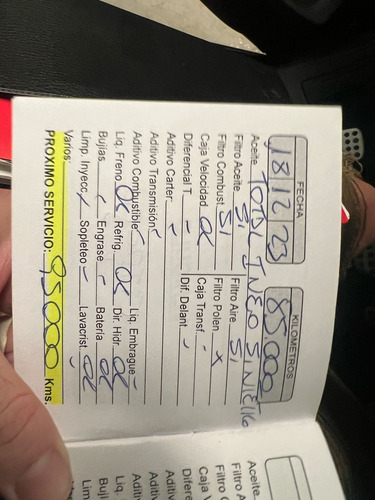 FECHA KILOMETROS
18/12/23 85000
Aceite TOTAL INEO
Filtro Aceite SI Filtro Aire SI
Filtro Combust. SI Filtro Polen X
Caja Velocidad. OK Caja Transf. -
Diferencial T. - Dif. Delant. -
Aditivo Carter: -
Aditivo Transmisión -
Aditivo Combustible - Liq. Embrague -
Liq. Freno OK Refrig. OK Dir. Hidr. OK
Bujias. - Engrase - Bateria OK
Limp. Inyecc. - Sopleteo - Lavacrist. OK
Varios:
PROXIMO SERVICIO: 95000 Kms.
Aceite
Filtro A
Filtro C
Caja V
Difere
Aditiv
Aditiv
Aditi
Liq.
Buji
Lim